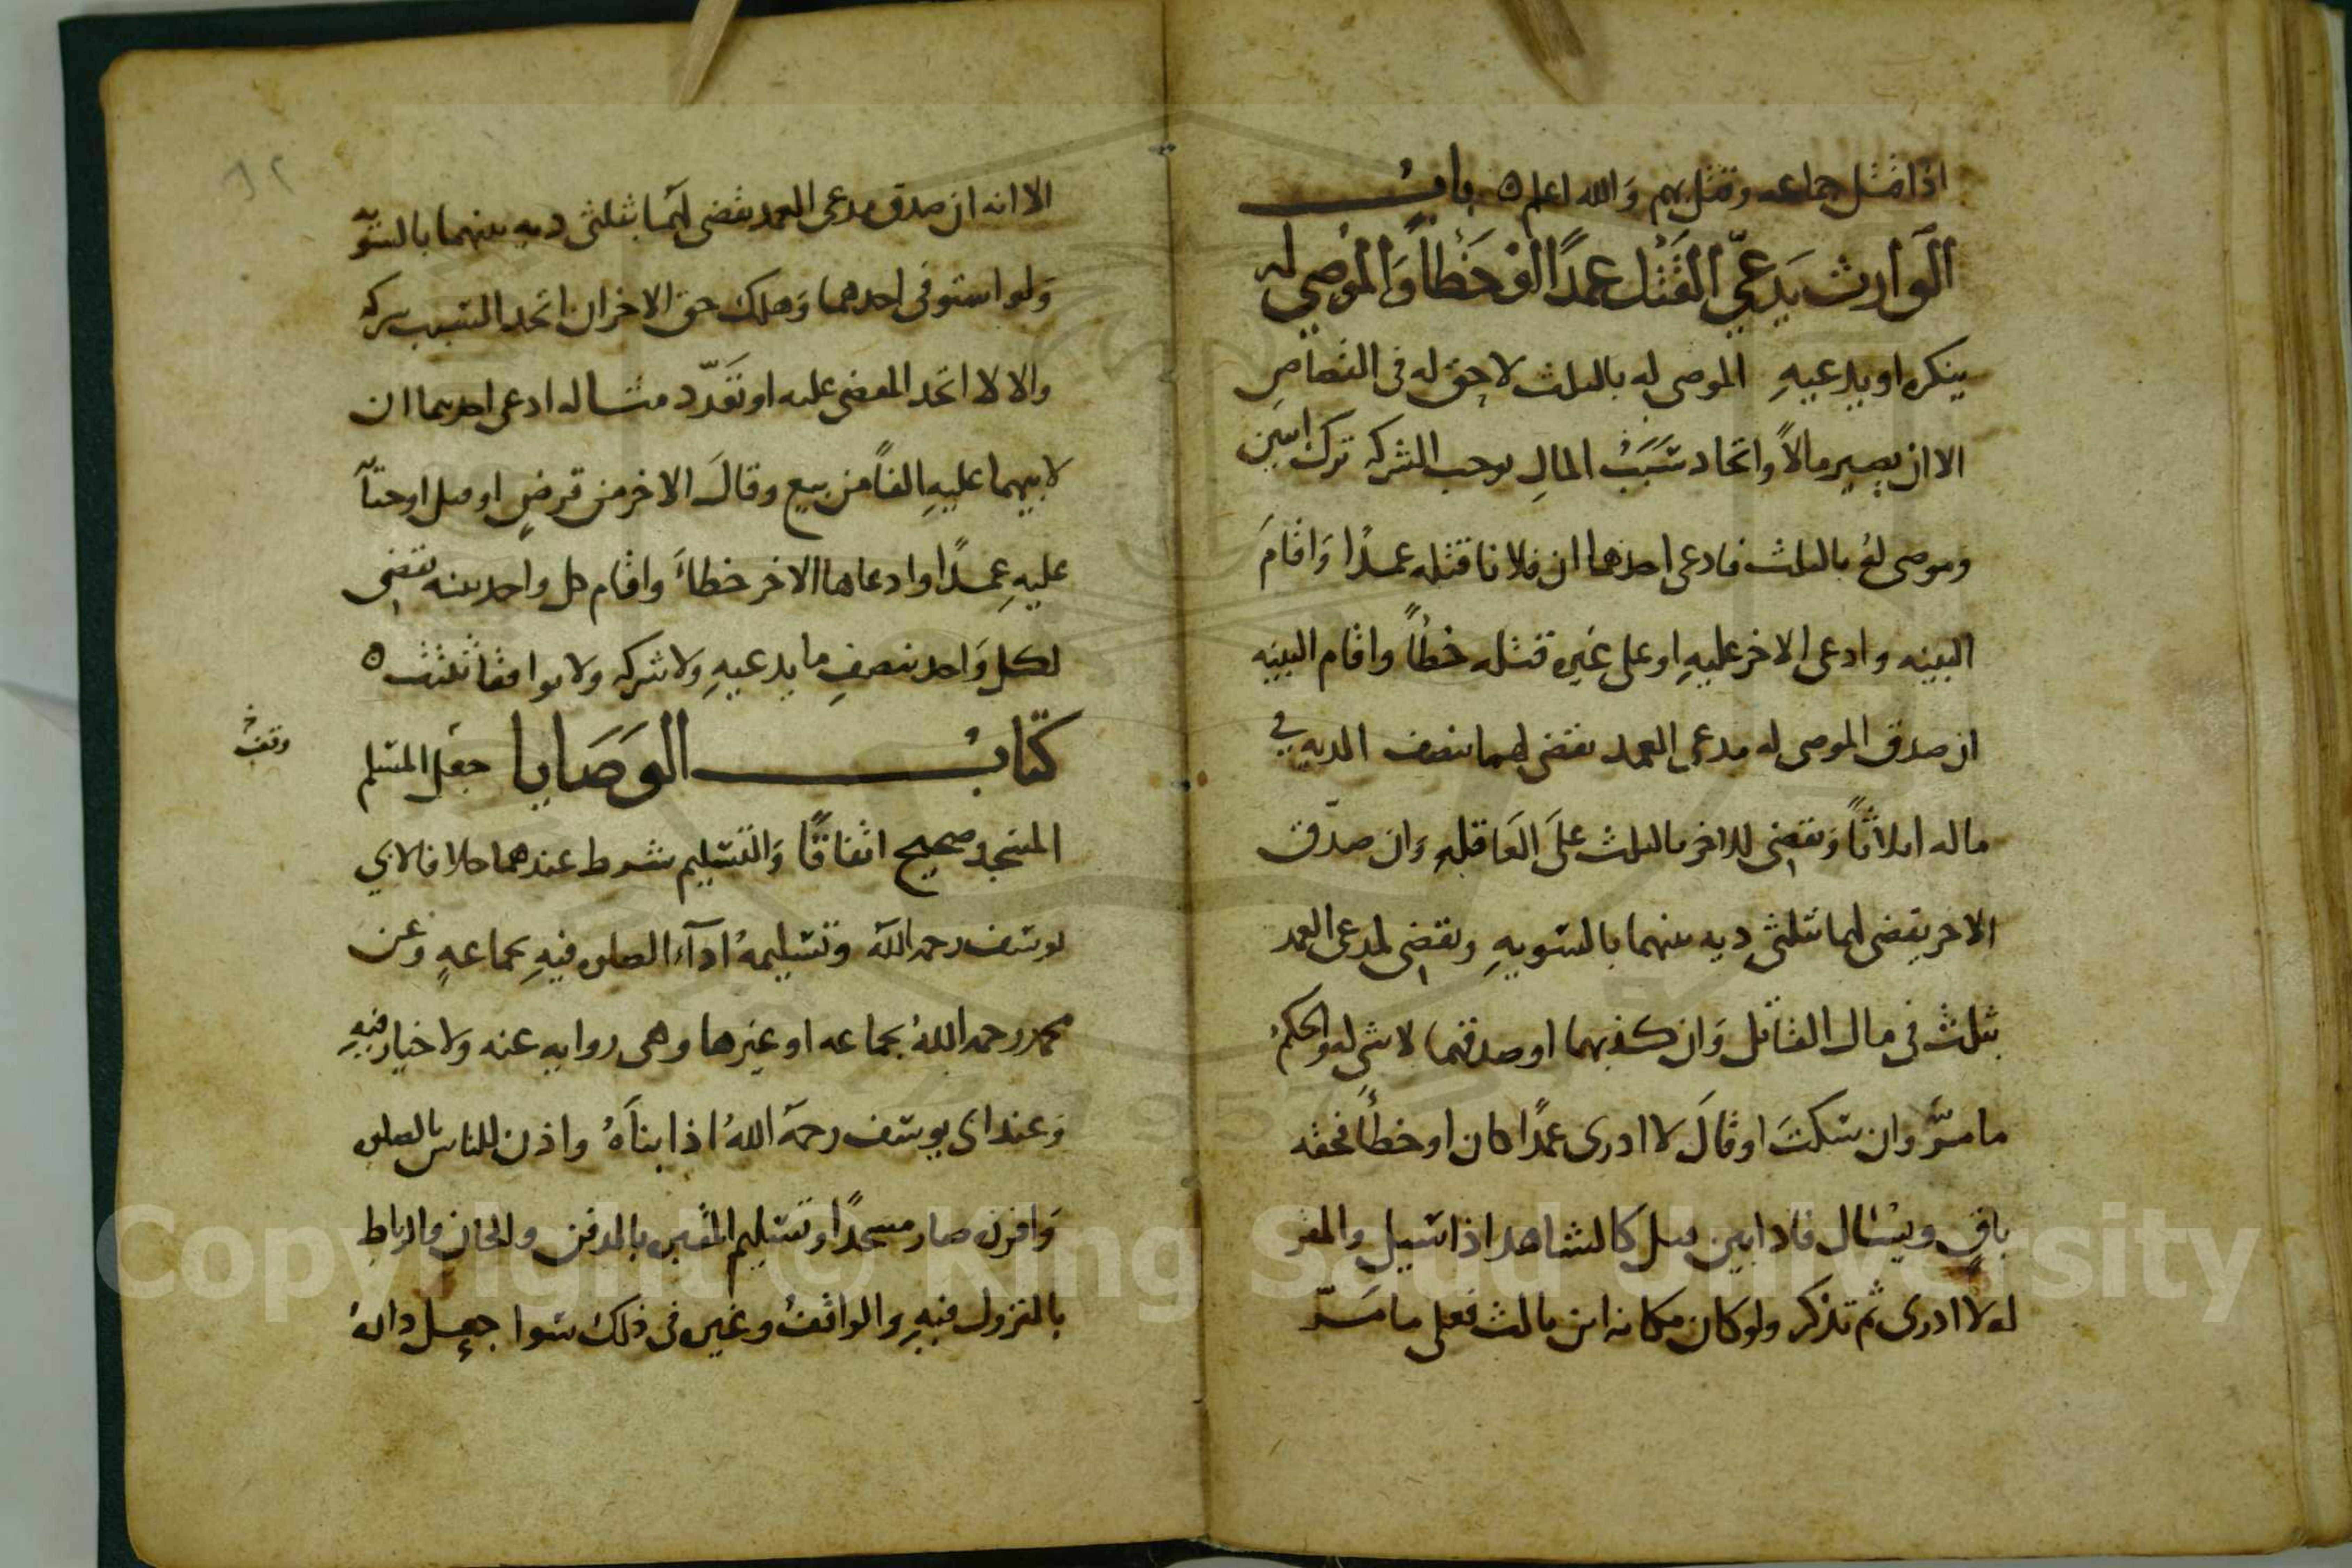 اذا قتل جماعه وقتل بهم وَالله اعلم ٥ بابُ
الوارث يَدعي القَتْل عمدًا اوْ خَطأً وَالموُصي له
ينكره او يدعيهِ الموصى له بالثلث لا حق له فى القصاصِ
الا ان يصير مالاً واتحاد سَبَبُ المالِ يوجب الشركه ترك ابنين
وموصى لهُ بالثلث فادعى احدهما ان فلانا قتله عمدًا وَاقامَ
البينه وادعى الاخر عليهِ او على غيره قتله خطأً واقام البينه
ان صدق الموصى له مدعى العمد يقضى لهما بنصف الديه في
ماله اثلاثًا وَيقضى للاخر بالثلث علَى العَاقله وَان صدّق
الاخر يقضى لهما بثلثى ديه بينهما بالسويهِ ويقضى لمدعى العمد
بثلث فى مال القاتل وَان كذبهما او صدقهما لا شى له والحكمُ
ما مرَّ وان سكتَ او قالَ لا ادرى عمدًا كان او خطأً فحقه
باقٍ ويسْال فاذا بين قبل كالشاهد اذا سيل والمقر
له لا ادرى ثم تذكر ولو كان مكانه ابن ثالث فعلى ما مَرّ
الا انه ان صدق مدعى العمد يقضى لهما بثلثى ديه بينهما بالسويّه
وَلو استوفى احدهما وَهلك حق الاخر ان اتحد السبب شركه
والا لا اتحد المقضى عليه او تعَدّد مثاله ادعى احدهما ان
لابيهما عليهِ الفاً من بيع وقالَ الاخر من قرضٍ او قبل او جنآ
عليهِ عمدًا وادعاها الاخر خطاءً واقام كل واحد بينه يقضى
لكل وَاحد بنصفِ ما يدعيهِ ولا شركه ولا توافقا ثلثت ٥
كتابُ الوَصَايا جعل المسلم
وقفْ
المسجد صحيح اتفاقًا وَالتسليم شرط عندهما خلافا لابي
يوسف رحمه اللهُ وتسليمهُ ادآء الصلوه فيهِ بجماعهٍ وَعن
محمد رحمه اللهُ بجماعه او غيرها وهى روايه عنه ولا خيار فيهِ
وَعند ابى يوسف رحمهُ اللهُ اذا بناهُ واذن للناس بالصلوه
وَافرزه صار مسجدًا وتسليم المقبره بالدفن والخان والرباط
بالنزول فيهِ والواقفُ وغيره فى ذلك سَوا جعل دارهُ